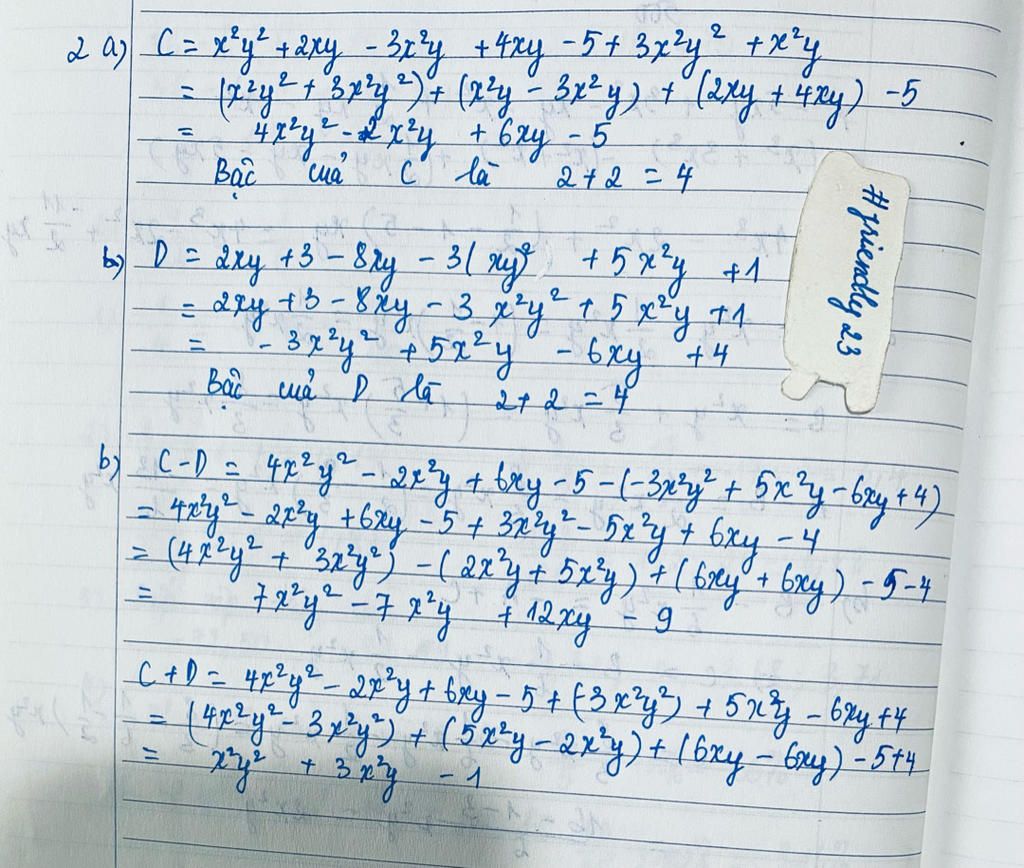 2 a) C = x²y² + 2xy - 3x²y + 4xy - 5 + 3x²y² + x²y
= (x²y² + 3x²y²) + (x²y - 3x²y) + (2xy + 4xy) - 5
= 4x²y² - 2x²y + 6xy - 5
Bậc của C là 2 + 2 = 4
b) D = 2xy + 3 - 8xy - 3(xy)² + 5x²y + 1
= 2xy + 3 - 8xy - 3x²y² + 5x²y + 1
= - 3x²y² + 5x²y - 6xy + 4
Bậc của D là 2 + 2 = 4
b) C - D = 4x²y² - 2x²y + 6xy - 5 - (-3x²y² + 5x²y - 6xy + 4)
= 4x²y² - 2x²y + 6xy - 5 + 3x²y² - 5x²y + 6xy - 4
= (4x²y² + 3x²y²) - (2x²y + 5x²y) + (6xy + 6xy) - 5 - 4
= 7x²y² - 7x²y + 12xy - 9
C + D = 4x²y² - 2x²y + 6xy - 5 + (-3x²y²) + 5x²y - 6xy + 4
= (4x²y² - 3x²y²) + (5x²y - 2x²y) + (6xy - 6xy) - 5 + 4
= x²y² + 3x²y - 1
#friendly23